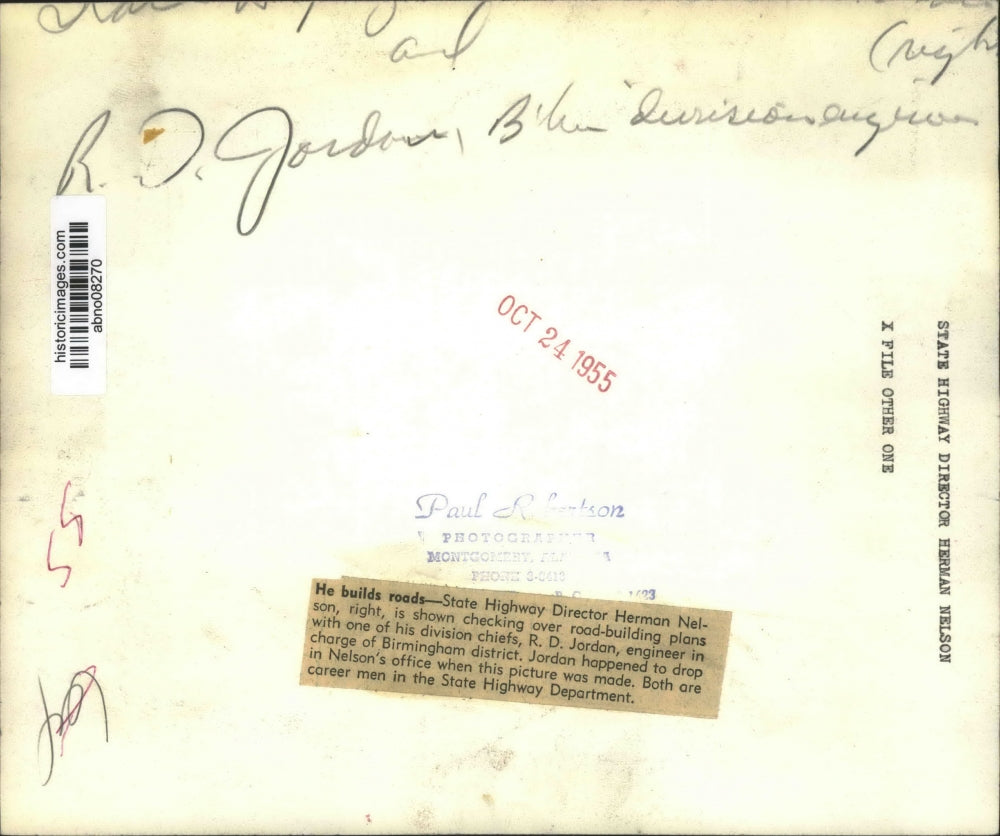 and
(right
R. D. Jordan, B'ham division engineer
historicimages.com
abno08270
OCT 24 1955
STATE HIGHWAY DIRECTOR HERMAN NELSON
X FILE OTHER ONE
55
Paul Robertson
PHOTOGRAPHER
MONTGOMERY,
PHONE
He builds roads—State Highway Director Herman Nel-
son, right, is shown checking over road-building plans
with one of his division chiefs, R. D. Jordan, engineer in
charge of Birmingham district. Jordan happened to drop
in Nelson's office when this picture was made. Both are
career men in the State Highway Department.